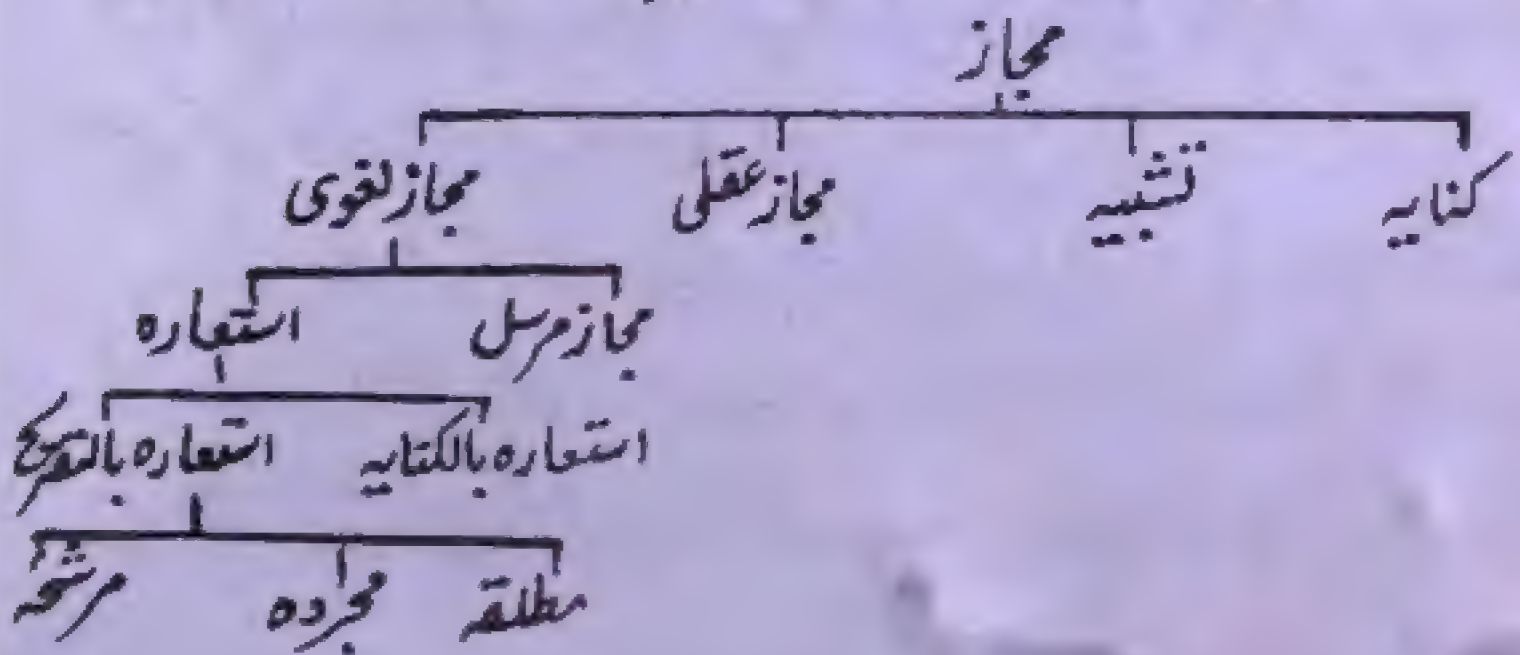 مجاز
کنایه تشبیه مجاز عقلی مجاز لغوی
مجاز مرسل استعاره
استعاره بالکنایه استعاره بالتصریح
مطلقه مجرده مرشحه